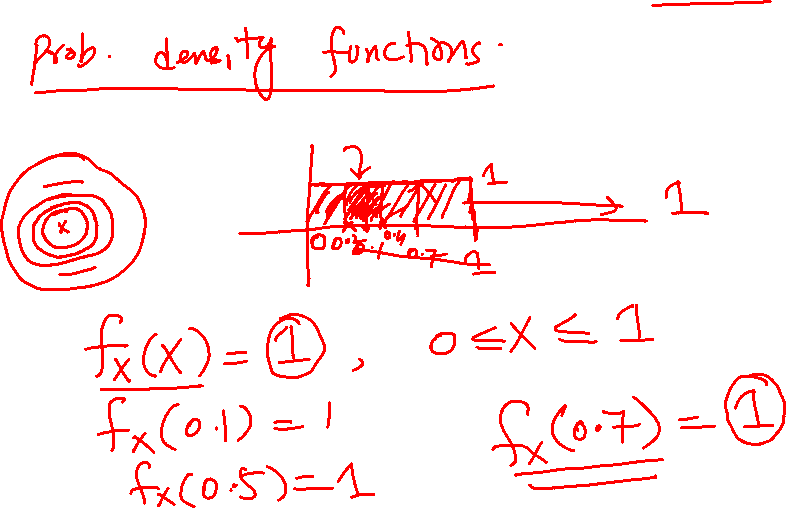 Prob. density functions.
1
1
x
0 0.4 0.7 1
f_X(x) = 1 , 0 ≤ x ≤ 1
f_X(0.1) = 1
f_X(0.7) = 1
f_X(0.5) = 1